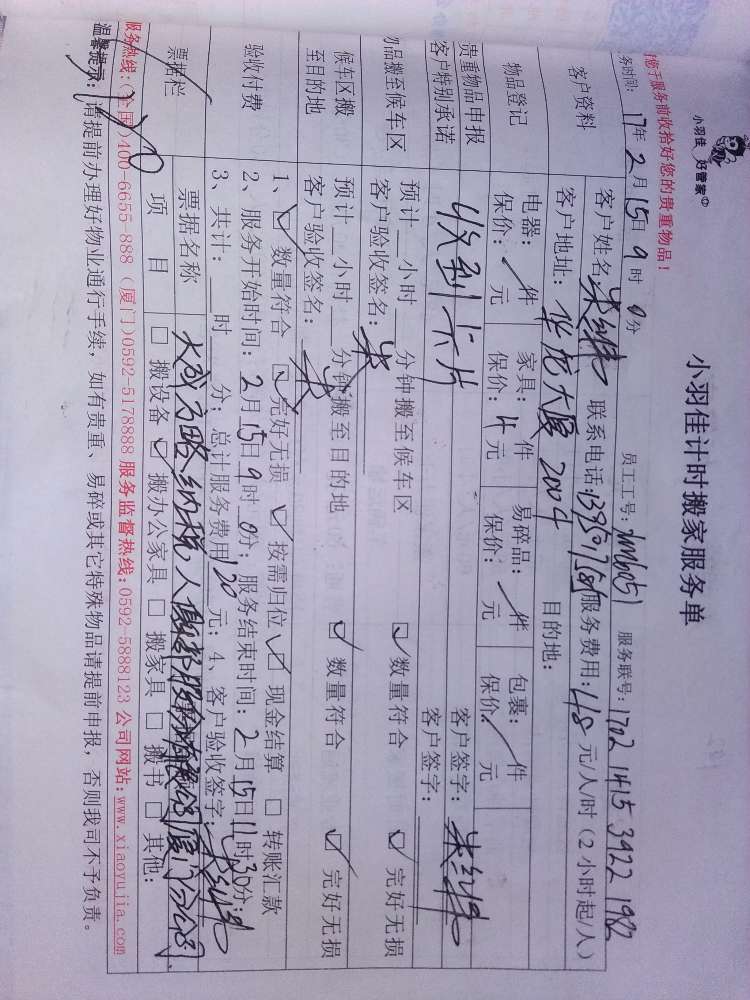 小羽佳 好管家
小羽佳计时搬家服务单
您于服务前收拾好您的贵重物品！
务时间：17年2月15日9时0分 员工工号： 服务联号：1702 1415 3922 1982
客户资料 客户姓名： 联系电话： 服务费用： 元/人/时（2小时起/人）
客户地址：华龙大厦2004 目的地：
物品登记 电器：/件 家具：件 易碎品：/件 包裹：/件
保价：元 保价：元 保价：元 保价：元
贵重物品申报 收到卡片 客户签字：
客户特别承诺 客户签字：
物品搬至候车区 预计__小时__分钟搬至候车区 ☑数量符合 ☑完好无损
客户验收签名：朱
候车区搬至目的地 预计__小时__分钟搬至目的地 ☑数量符合 ☑完好无损
客户验收签名：朱
验收付费 1、☑数量符合 ☑完好无损 ☑按需归位 ☑现金结算 □转账汇款
2、服务开始时间：2月15日9时0分；服务结束时间：2月15日11时30分；
3、共计：__时__分；总计服务费用120元；4、客户验收签字：
票据栏 票据名称 大成方略纳税人俱乐部股份有限公司厦门分公司
项目 □搬设备 ☑搬办公家具 □搬家具 □搬书 □其他：
服务热线：(全国)400-6655-888（厦门)0592-5178888 服务监督热线：0592-5888123 公司网站：www.xiaoyujia.com
温馨提示：请提前办理好物业通行手续，如有贵重、易碎或其它特殊物品请提前申报，否则我司不予负责。